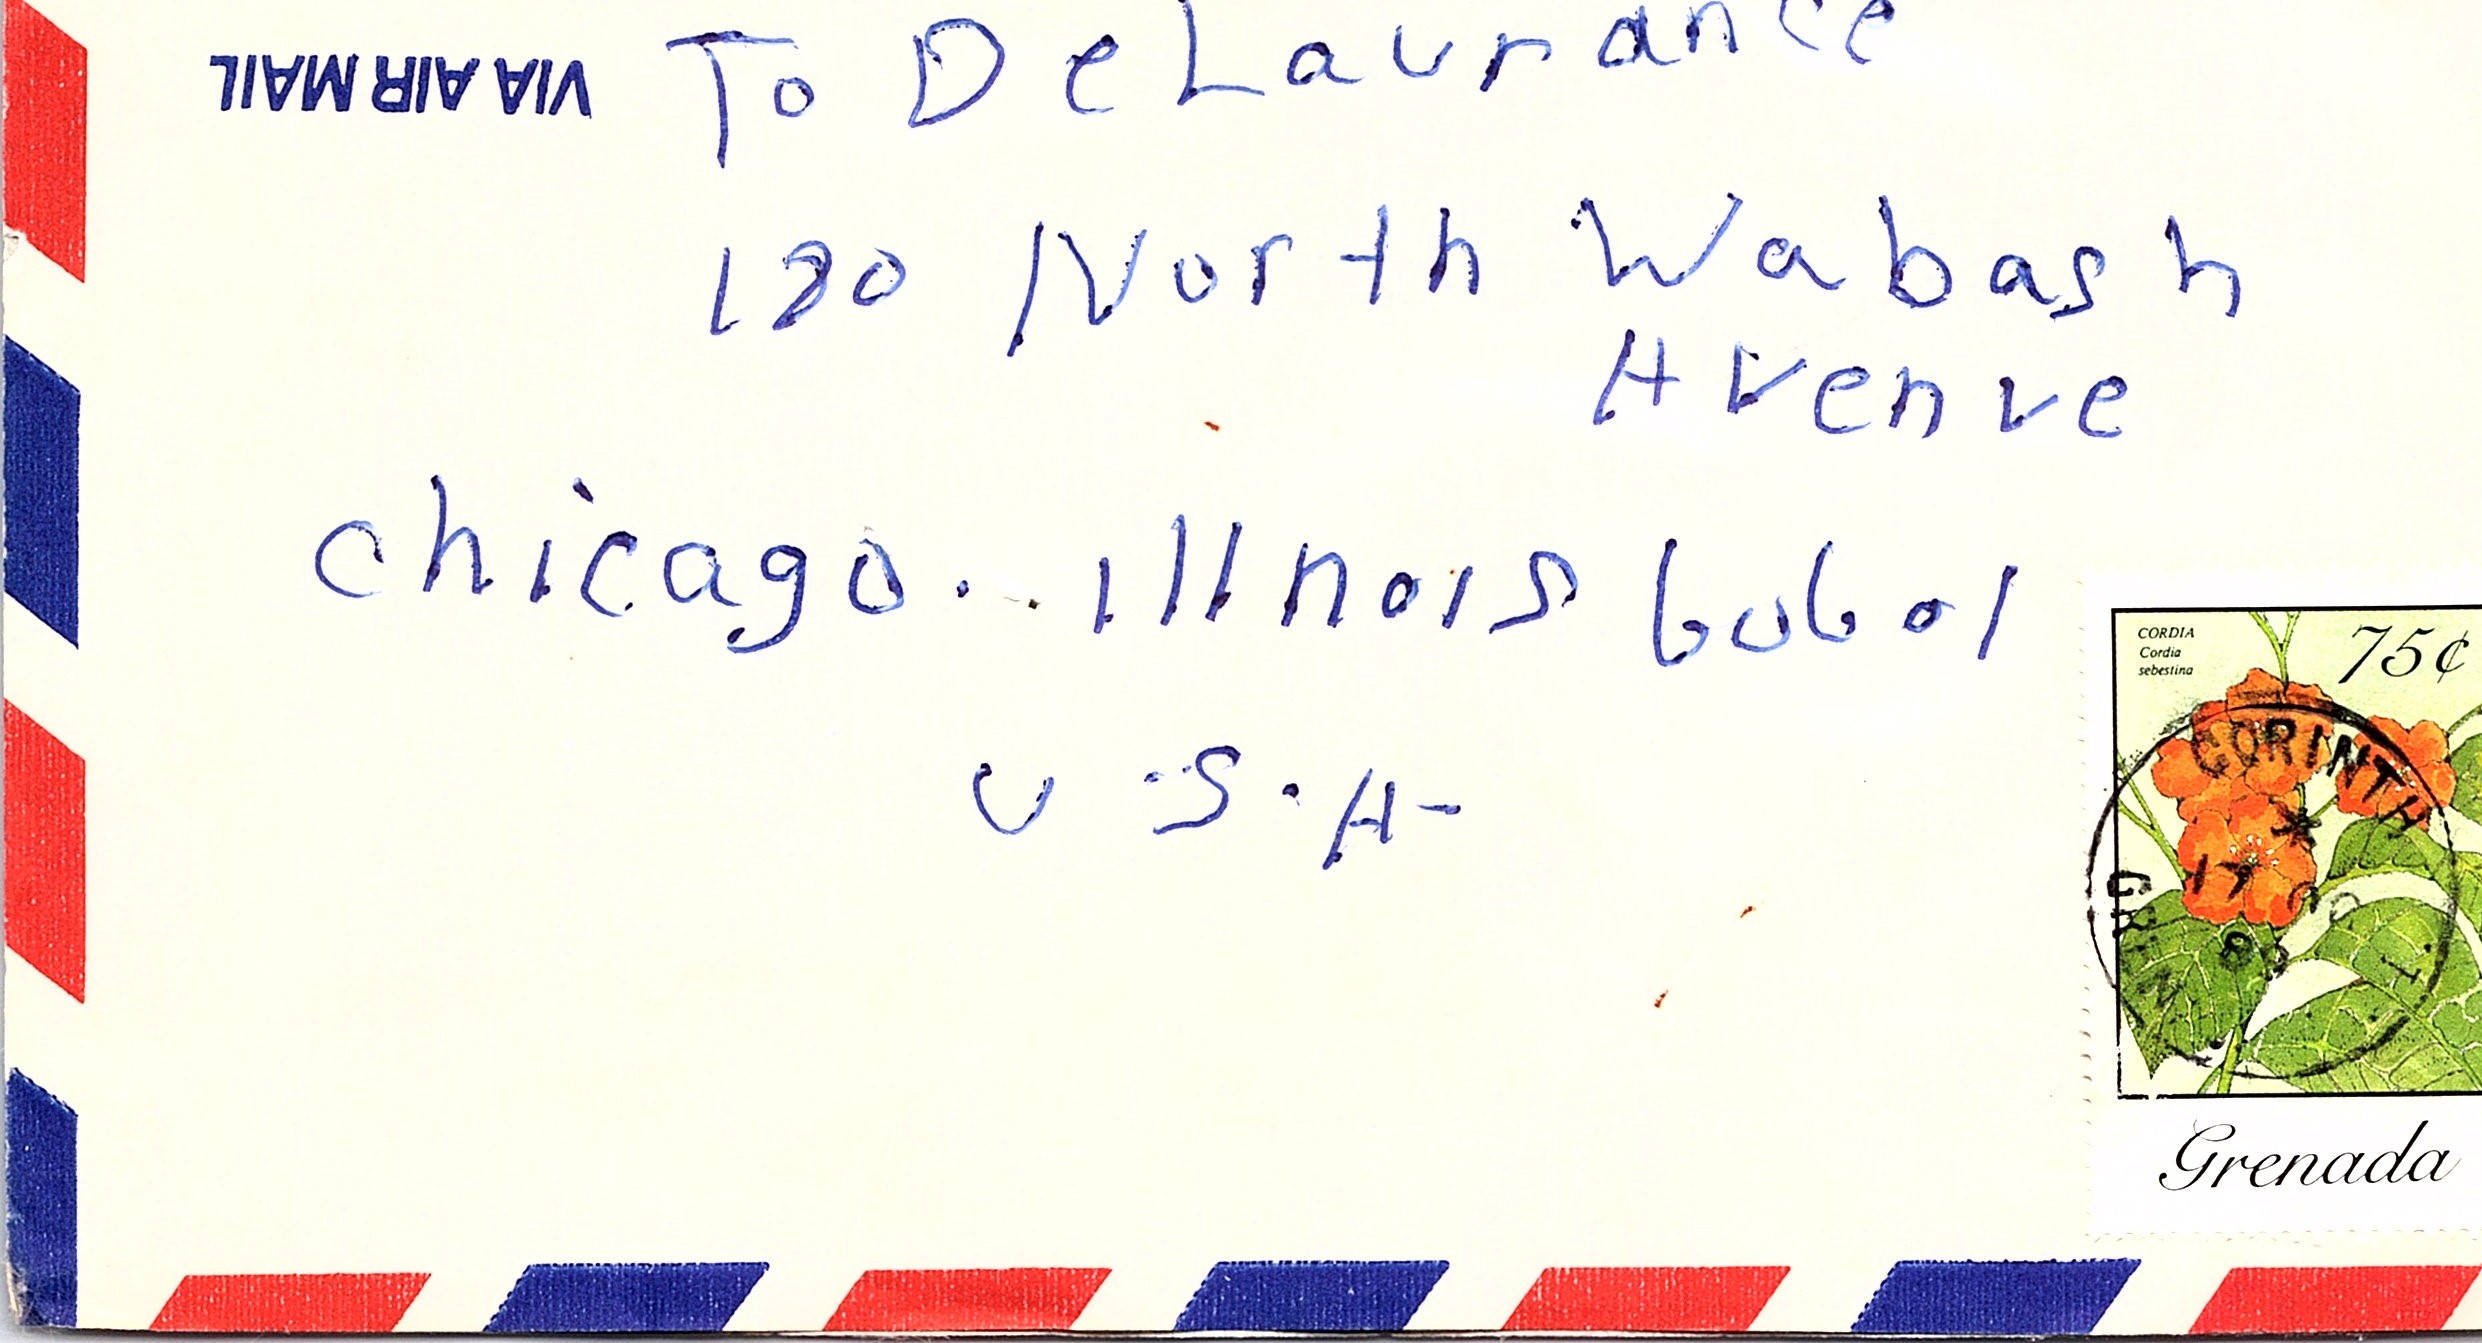 VIA AIR MAIL
To DeLaurance
180 North Wabash
Avenue
chicago. illinois 60601
U.S.A-
CORDIA
Cordia
sebestina
75¢
CORINTH
17
Grenada